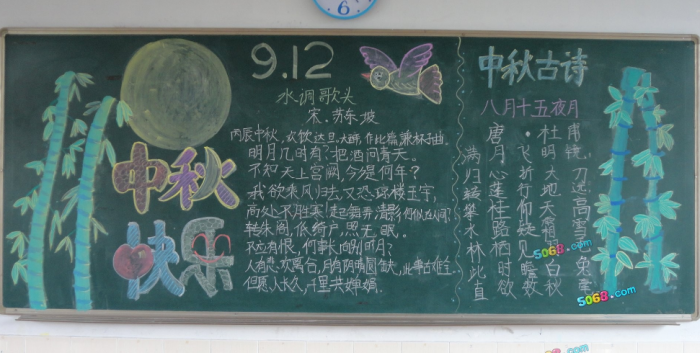 6
中秋
快乐
9.12
水调歌头
宋.苏东坡
丙辰中秋,欢饮达旦,大醉,作此篇,兼怀子由。
明月几时有?把酒问青天。
不知天上宫阙,今夕是何年?
我欲乘风归去,又恐琼楼玉宇,
高处不胜寒!起舞弄清影何似人间
转朱阁,低绮户,照无眠。
不应有恨,何事长向别时圆?
人有悲欢离合,月有阴晴圆缺,此事古难全
但愿人长久,千里共婵娟。
中秋古诗
八月十五夜月
唐·杜甫
满月飞明镜
归心折大刀
转蓬行地远
攀桂仰天高
水路疑霜雪
林栖见
此时瞻白兔
直欲数秋
5068.com
5068.com
5068.com